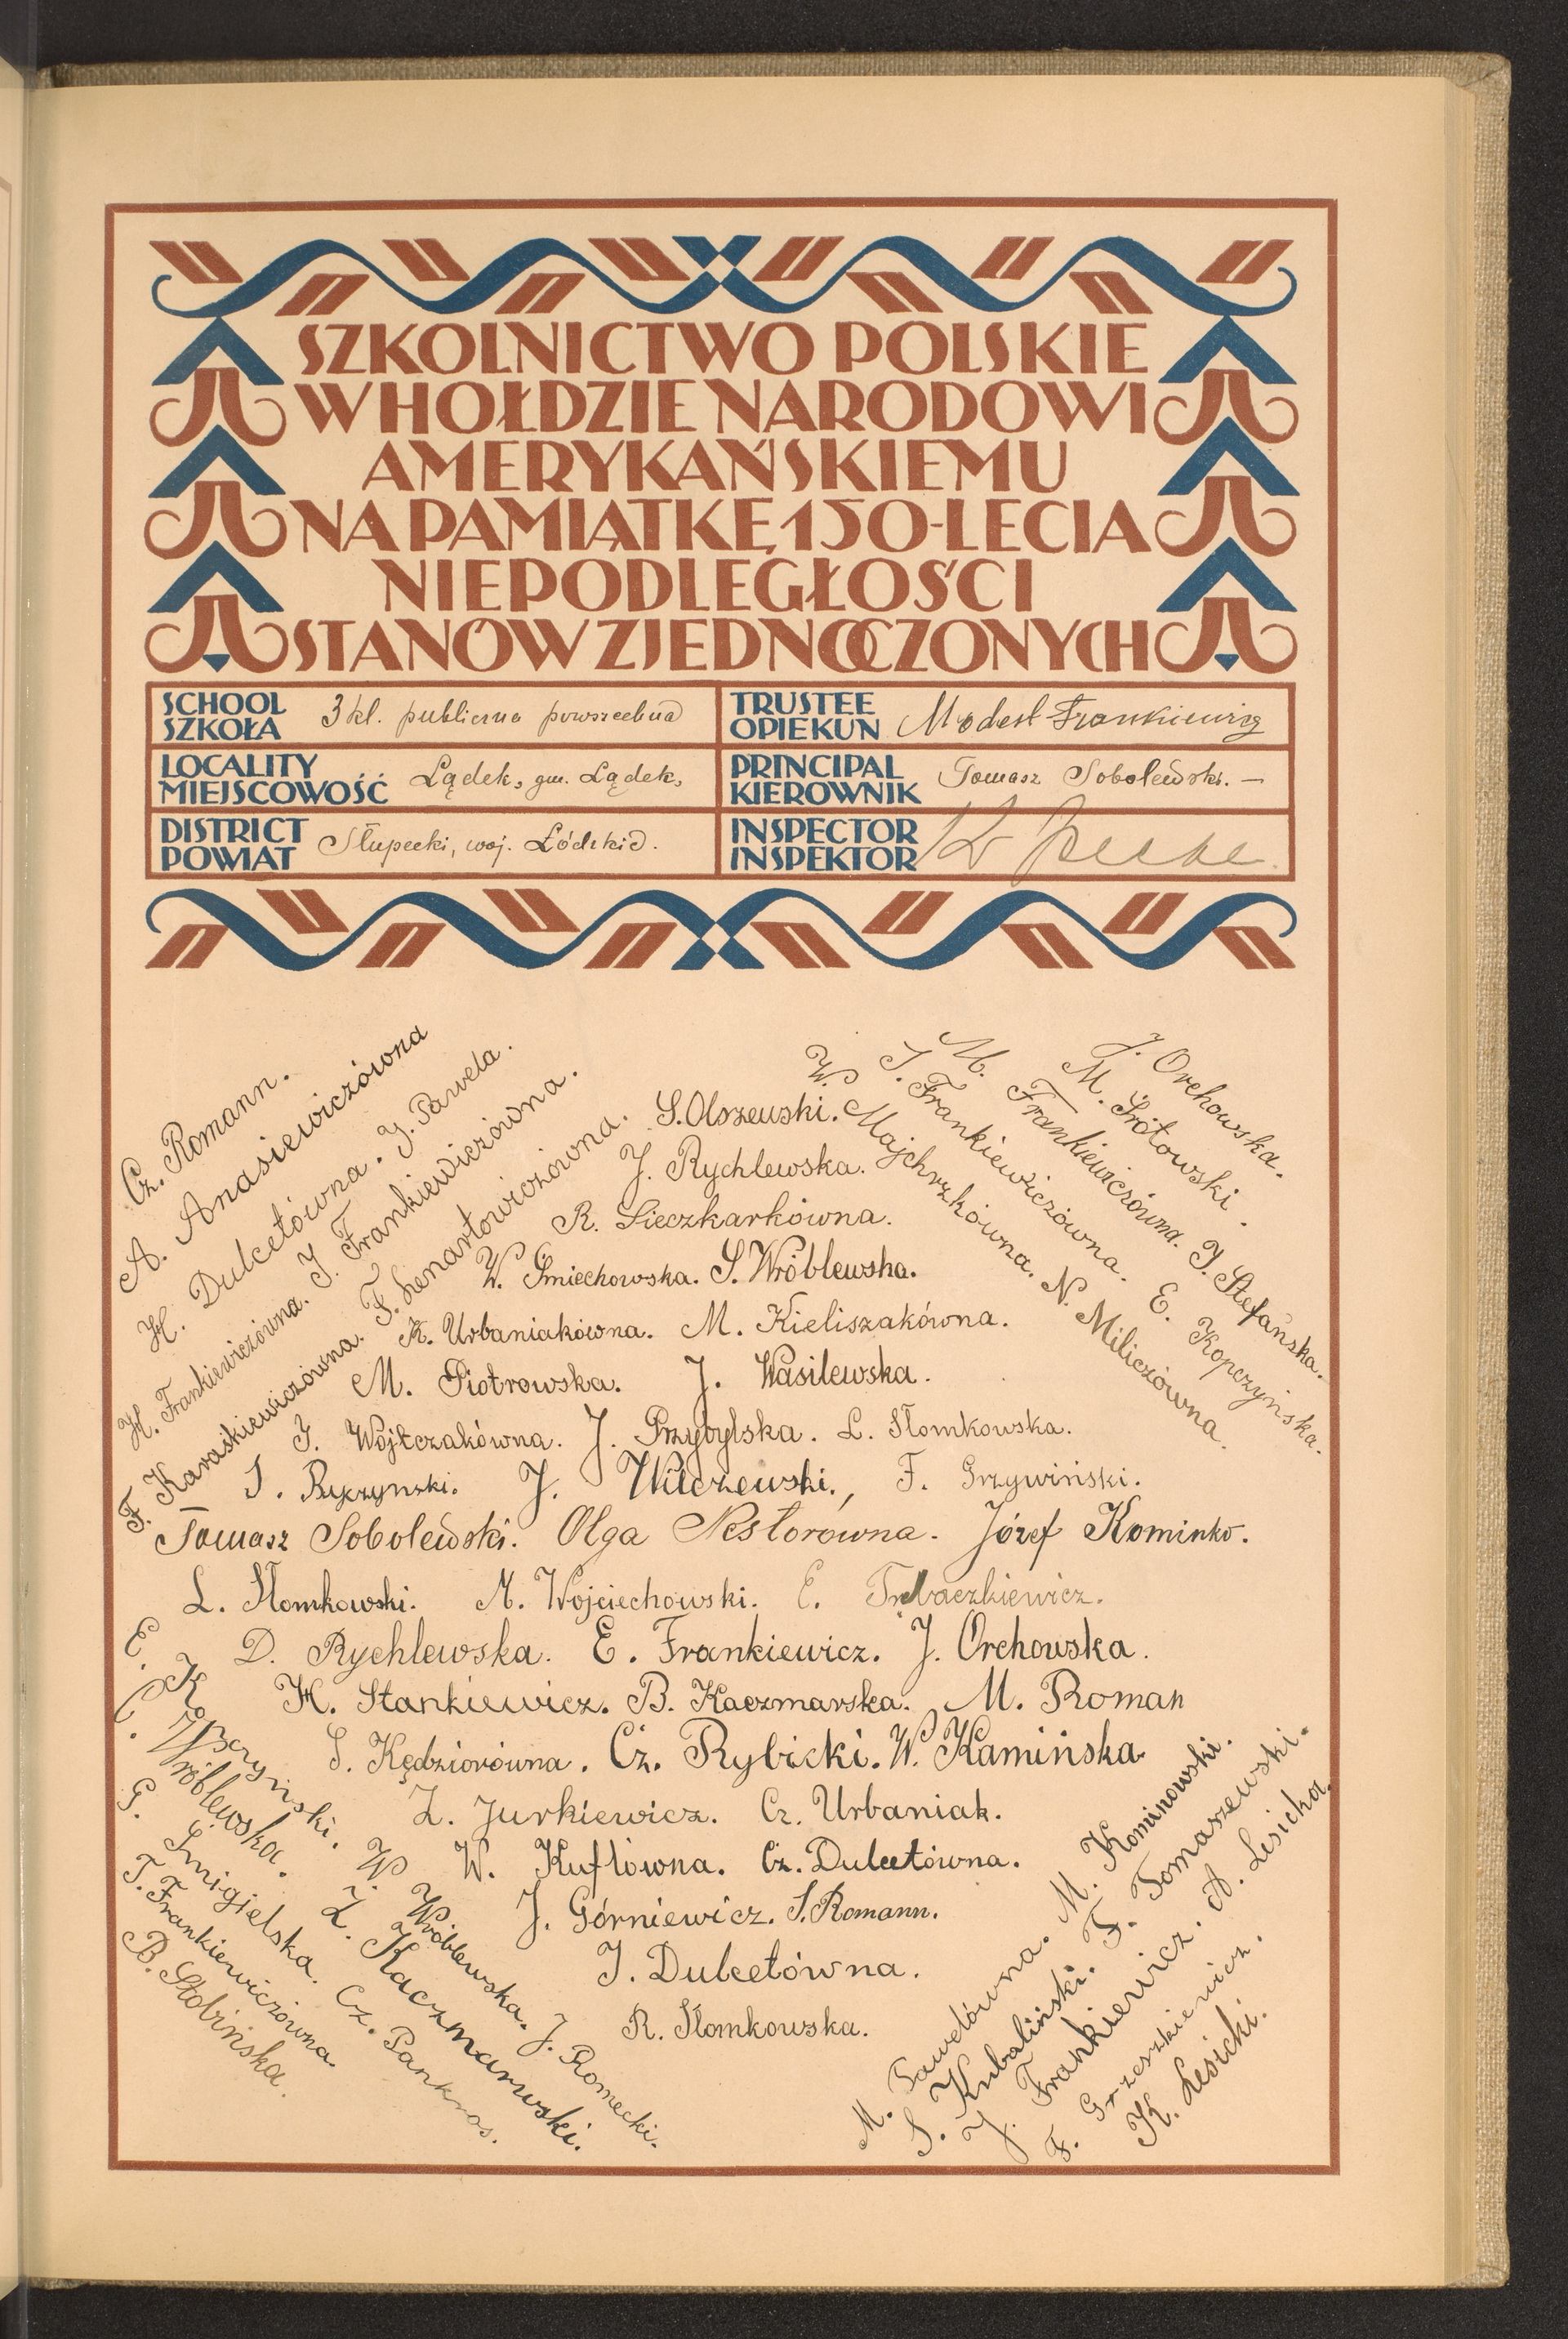 SZKOLNICTWO POLSKIE
W HOŁDZIE NARODOWI
AMERYKAŃSKIEMU
NA PAMIĄTKĘ 150-LECIA
NIEPODLEGŁOŚCI
STANÓW ZJEDNOCZONYCH
SCHOOL
SZKOŁA 3 kl. publiczna powszechna
TRUSTEE
OPIEKUN Modest Frankiewicz
LOCALITY
MIEJSCOWOŚĆ Lądek, gm. Lądek,
PRINCIPAL
KIEROWNIK Tomasz Sobolewski. —
DISTRICT
POWIAT Słupecki, woj. Łódzkie.
INSPECTOR
INSPEKTOR
Cz. Romann.
A. Anasiewiczówna
H. Dulcetówna. J. Pawela.
H. Frankiewiczówna. J. Frankiewiczówna.
F. Karaśkiewiczówna. F. Lenartowiczówna.
S. Olszewski.
J. Rychlewska.
R. Sieczkarkówna.
W. Śmiechowska. S. Wróblewska.
K. Urbaniakówna. M. Kieliszakówna.
M. Piotrowska. J. Wasilewska.
J. Wojtczakówna. J. Przybylska. L. Słomkowska.
S. Ryczynski. J. Wilczewski., F. Grzywiński.
J. Orchowska.
M. Śrotowski.
M. Frankiewiczówna. J. Stefańska.
S. Frankiewiczówna. E. Kopczyńska.
W. Majchrzkówna. N. Miliczówna.
Tomasz Sobolewski. Olga Nestorowna. Józef Kominko.
L. Słomkowski. M. Wojciechowski. E. Trębaczkiewicz.
D. Rychlewska. E. Frankiewicz. J. Orchowska.
H. Stankiewicz. B. Kaczmarska. M. Roman
S. Kędziorówna. Cz. Rybicki. W. Kamińska
Z. Jurkiewicz. Cz. Urbaniak.
W. Kuflówna. Cz. Dulcetówna.
J. Górniewicz. S. Romann.
J. Dulcetówna.
R. Słomkowska.
E. Kopczyński. W. Wróblewska. J. Romecki.
C. Wróblewska. Z. Kaczmarwski.
G. Śmigielska. Cz. Pankros.
T. Frankiewiczówna.
B. Stobińska.
M. Pawelówna. M. Kominowski.
S. Kubaliński. F. Tomaszewski.
J. Frankiewicz. A. Lesicka.
F. Grzeszkiewicz.
K. Lesicki.